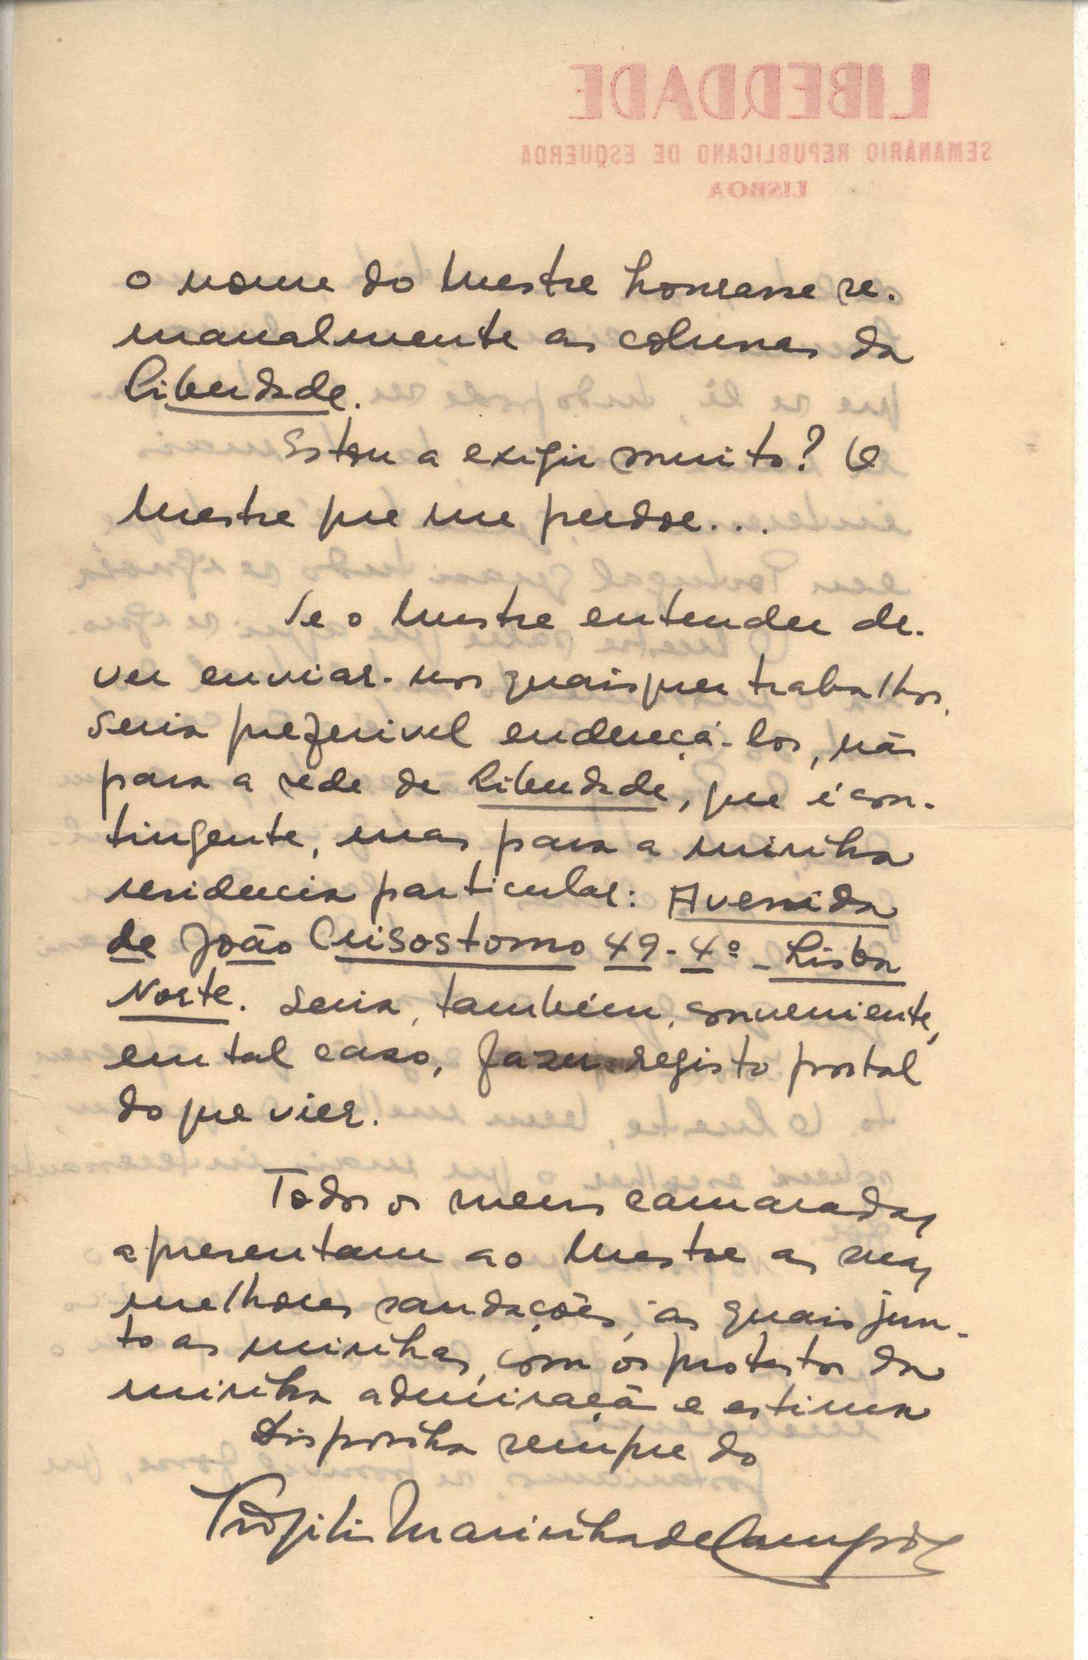 LIBERDADE
SEMANÁRIO REPUBLICANO DE ESQUERDA
LISBOA
o nome do Mestre honrasse se-
manalmente as colunas da
Liberdade.
Estou a exigir muito? O
Mestre que me perdoe...
Se o Mestre entender de-
ver enviar-nos quaisquer trabalhos,
seria preferivel endereçá-los, não
para a sede da Liberdade, que é con-
tingente, mas para a minha
residencia particular: Avenida
de João Crisostomo 49-4º - Lisboa
Norte. Seria, também, conveniente,
em tal caso, fazer registo postal
do que vier.
Todos os meus camaradas
apresentam ao Mestre as suas
melhores saudações, às quais jun-
to as minhas, com os protestos da
minha admiração e estima
Disponha sempre do
Marinha de Campos